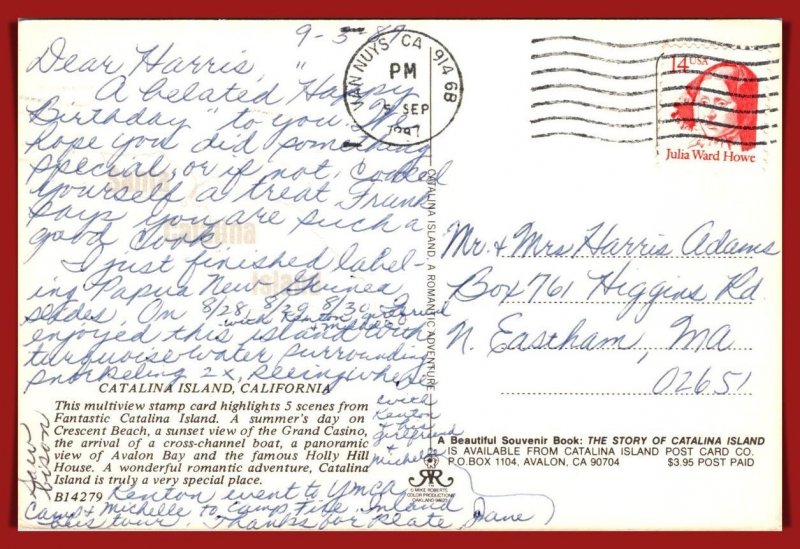 9-5-87
Dear Harris,
A belated "Happy
Birthday" to you. We
hope you did something
special, or if not, cooked
yourself a treat. Frank
says you are such a
good cook.
I just finished label-
ing Papua New Guinea
slides. On 8/28, 8/29, 8/30 I
with Kenton, girlfriend
& Michelle
enjoyed this island with
turquoise water surrounding
snorkeling 2x, seeing
with
Kenton
& his
girlfriend
&
Michelle
Saw
bison
Kenton went to YMCA
Camp & Michelle to Camp Fire. Inland
bus tour. Thanks for plate Jane
CATALINA ISLAND, CALIFORNIA
This multiview stamp card highlights 5 scenes from
Fantastic Catalina Island. A summer's day on
Crescent Beach, a sunset view of the Grand Casino,
the arrival of a cross-channel boat, a panoramic
view of Avalon Bay and the famous Holly Hill
House. A wonderful romantic adventure, Catalina
Island is truly a very special place.
B14279
Santa
Catalina
Island
CATALINA ISLAND, A ROMANTIC ADVENTURE
© MIKE ROBERTS
COLOR PRODUCTIONS
OAKLAND 94623
VAN NUYS, CA 91468
PM
5 SEP
1987
14 USA
Julia Ward Howe
Mr. & Mrs Harris Adams
Box 761 Higgins Rd
N. Eastham, Ma
02651
A Beautiful Souvenir Book: THE STORY OF CATALINA ISLAND
IS AVAILABLE FROM CATALINA ISLAND POST CARD CO.
P.O.BOX 1104, AVALON, CA 90704 $3.95 POST PAID